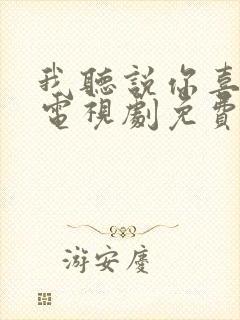 我聽説你喜
電視劇免費
游安慶